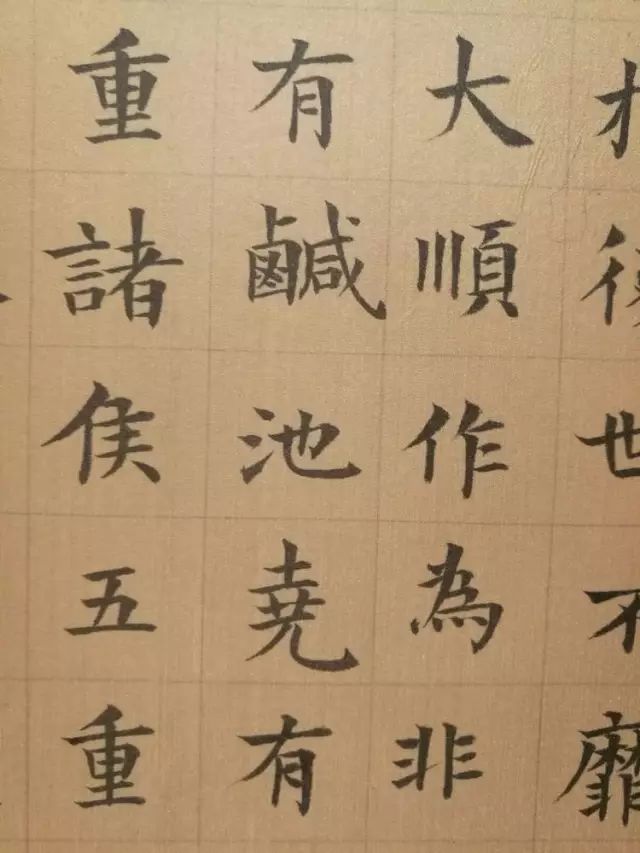 後世不靡
大順作為非
有鹹池堯有
重諸侯五重